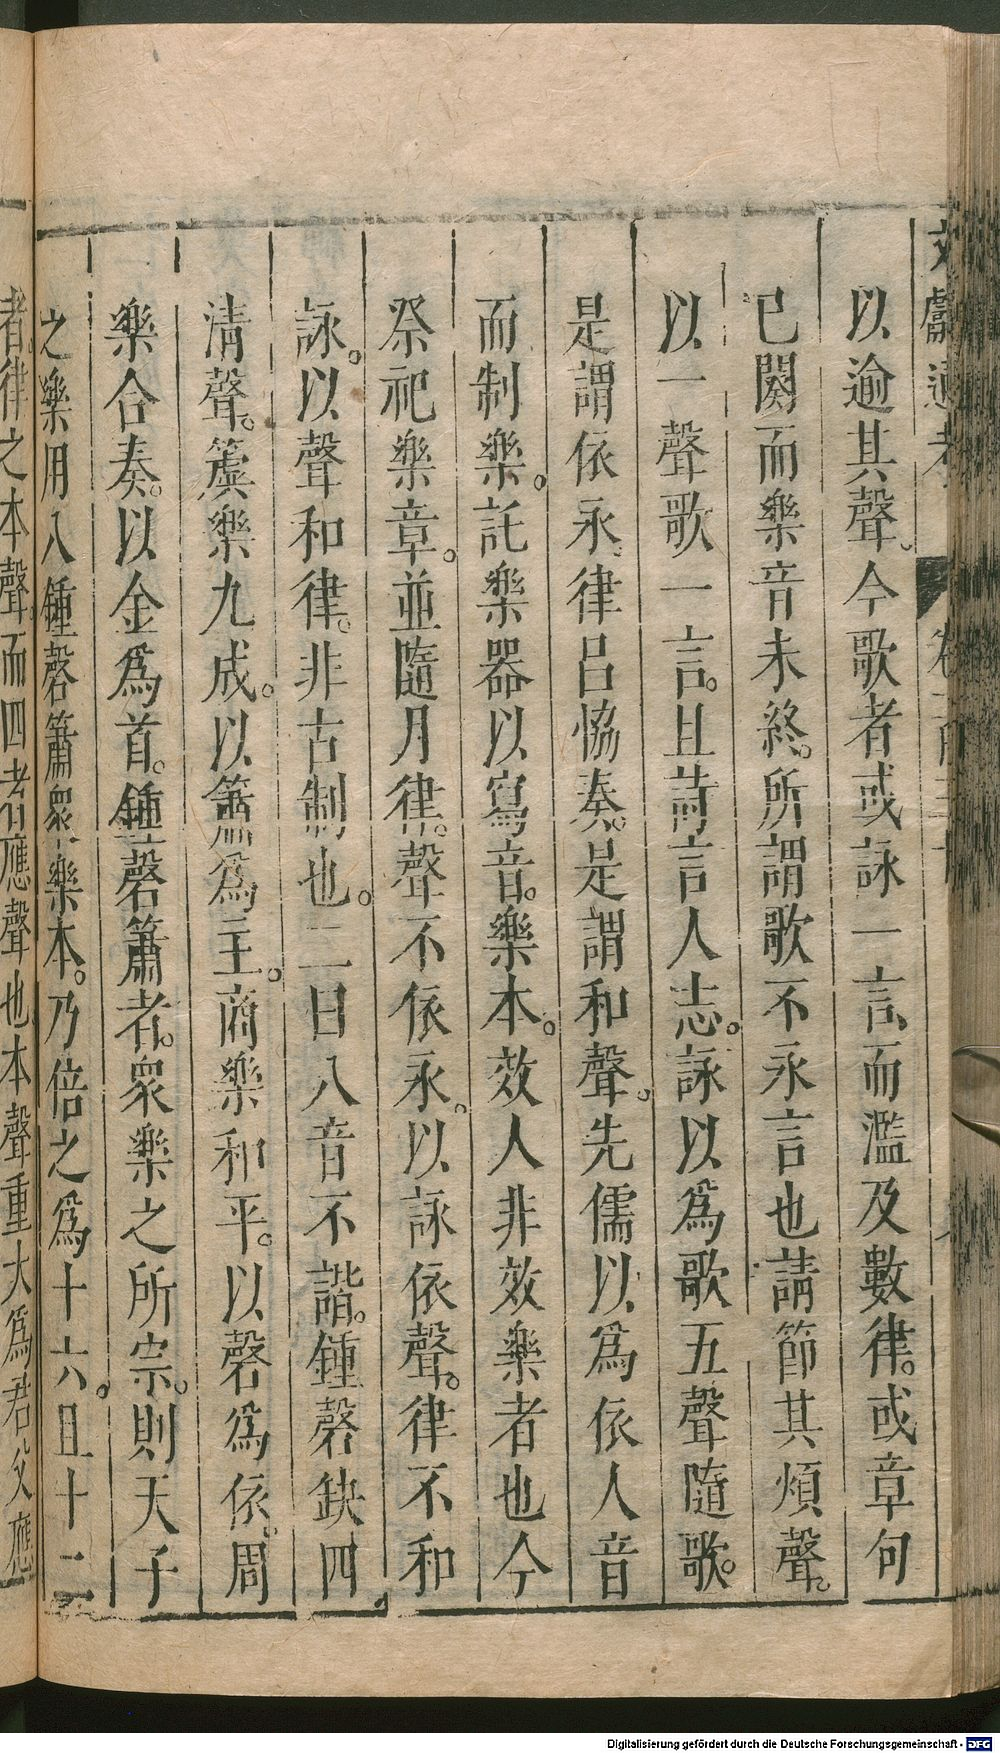 以逾其聲。今歌者或詠一言、而濫及數律。或章句
已闋而樂音未終。所謂歌不永言也請節其煩聲。
以一聲歌一言。且詩言人志。詠以爲歌五聲隨歌。
是謂依永。律吕恊奏。是謂和聲。先儒以爲依人音
而制樂。託樂器以寫音。樂本。效人非效樂者也今
祭祀樂章。並隨月律。聲不依永。以詠依聲。律不和
詠。以聲和律。非古制也。二曰八音不諧。鍾磬缺四
清聲。虞樂九成。以簫爲主。商樂和平。以磬爲依。周
樂合奏。以金爲首。鍾磬簫者。衆樂之所宗。則天子
之樂用八鍾磬簫衆樂本。乃倍之爲十六。且十二
者。律之本聲。而四者應聲也本聲重大爲君父應
Digitalisierung gefördert durch die Deutsche Forschungsgemeinschaft - DFG